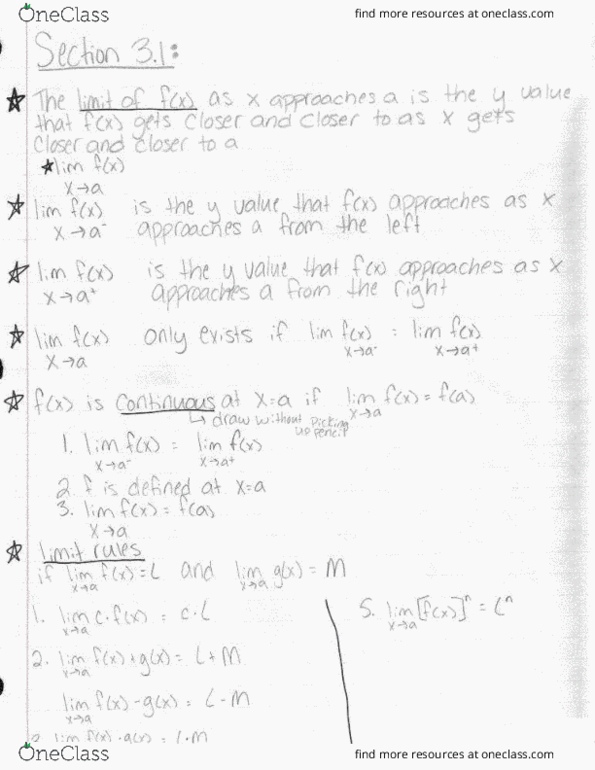 OneClass
find more resources at oneclass.com
Section 3.1:
★ The limit of f(x) as x approaches a is the y value
that f(x) gets closer and closer to as x gets
closer and closer to a
★ lim f(x)
x→a
★ lim f(x) is the y value that f(x) approaches as x
x→a⁻ approaches a from the left
★ lim f(x) is the y value that f(x) approaches as x
x→a⁺ approaches a from the right
★ lim f(x) only exists if lim f(x) = lim f(x)
x→a x→a⁻ x→a⁺
★ f(x) is continuous at x=a if lim f(x) = f(a)
x→a
↳ draw without picking
up pencil
1. lim f(x) = lim f(x)
x→a⁻ x→a⁺
2. f is defined at x=a
3. lim f(x) = f(a)
x→a
★ limit rules
if lim f(x) = L and lim g(x) = M
x→a x→a
1. lim c·f(x) = c·L
x→a
2. lim f(x)+g(x) = L+M
x→a
lim f(x)-g(x) = L-M
x→a
3. lim f(x)·g(x) = L·M
5. lim [f(x)]ⁿ = Lⁿ
x→a
OneClass
find more resources at oneclass.com